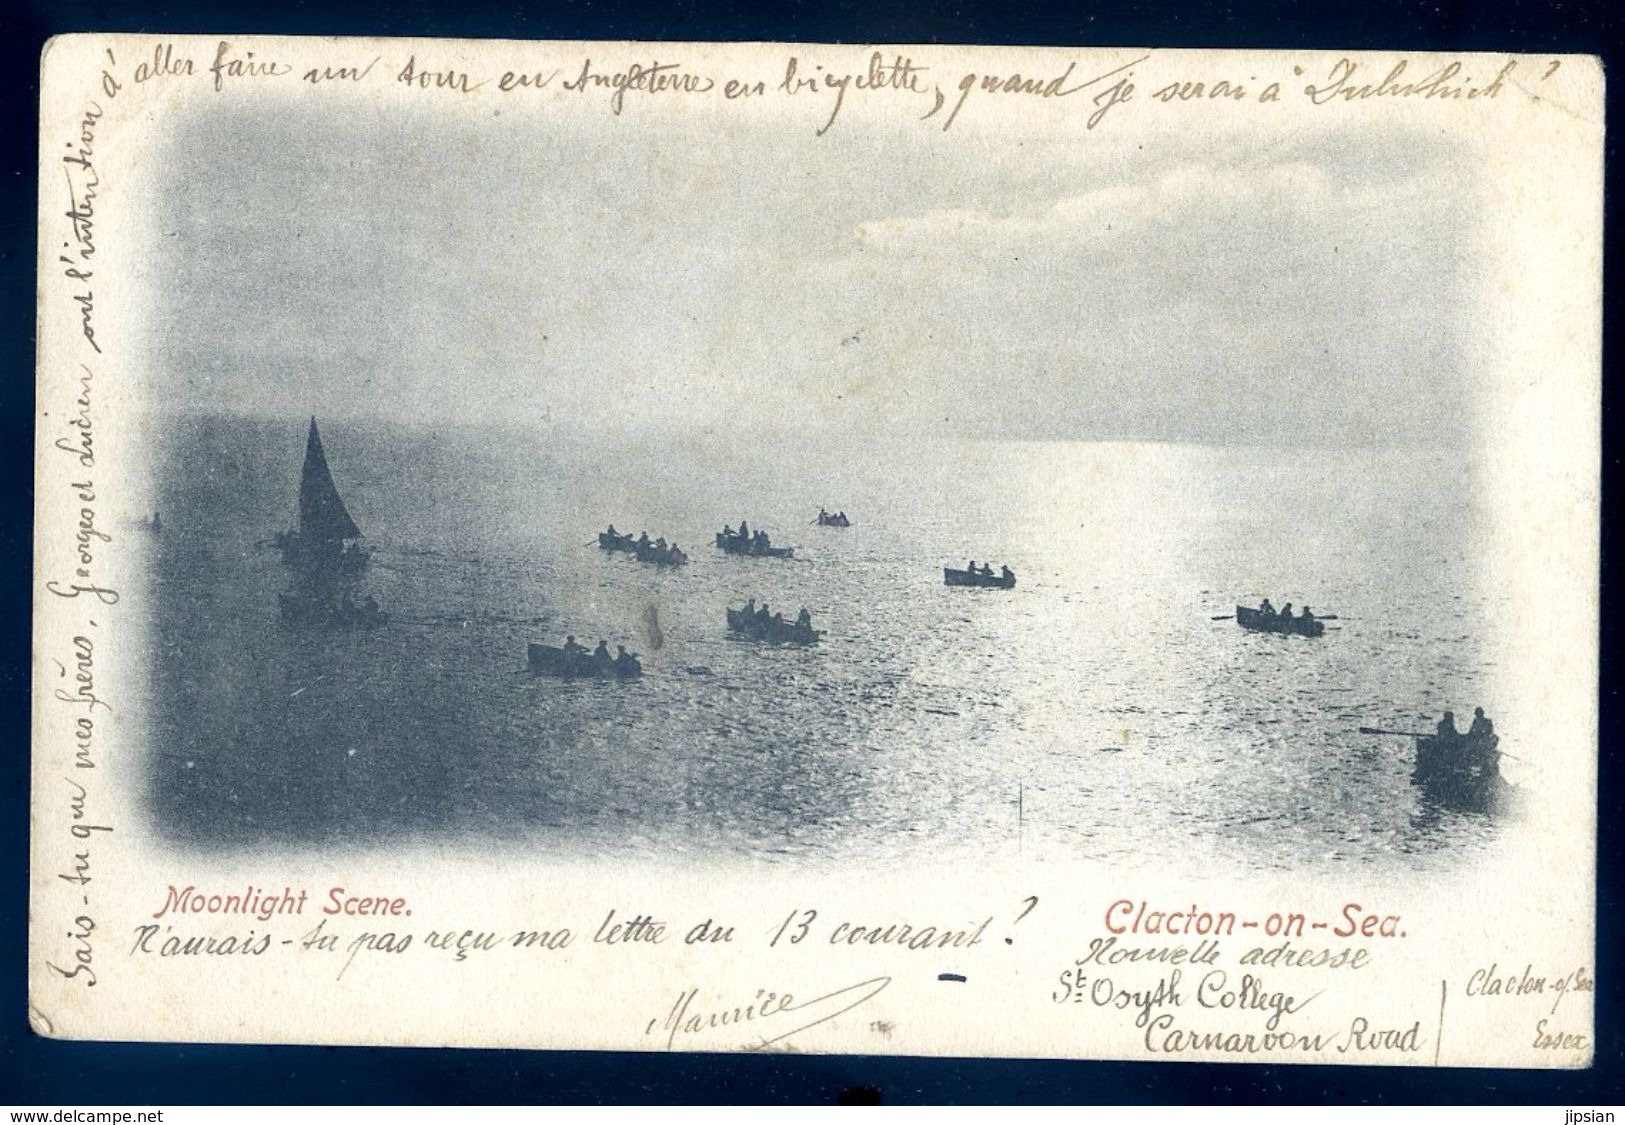 Sais-tu que mes frères, Georges et Lucien ont l'intention d'
aller faire un tour en Angleterre en bicyclette, quand je serai à Dulwhich ?
Moonlight Scene.
Clacton-on-Sea.
N'aurais-tu pas reçu ma lettre du 13 courant ?
Maurice
Nouvelle adresse
St Osyth College
Carnarvon Road
Clacton-o/Sea
Essex
www.delcampe.net
jipsian